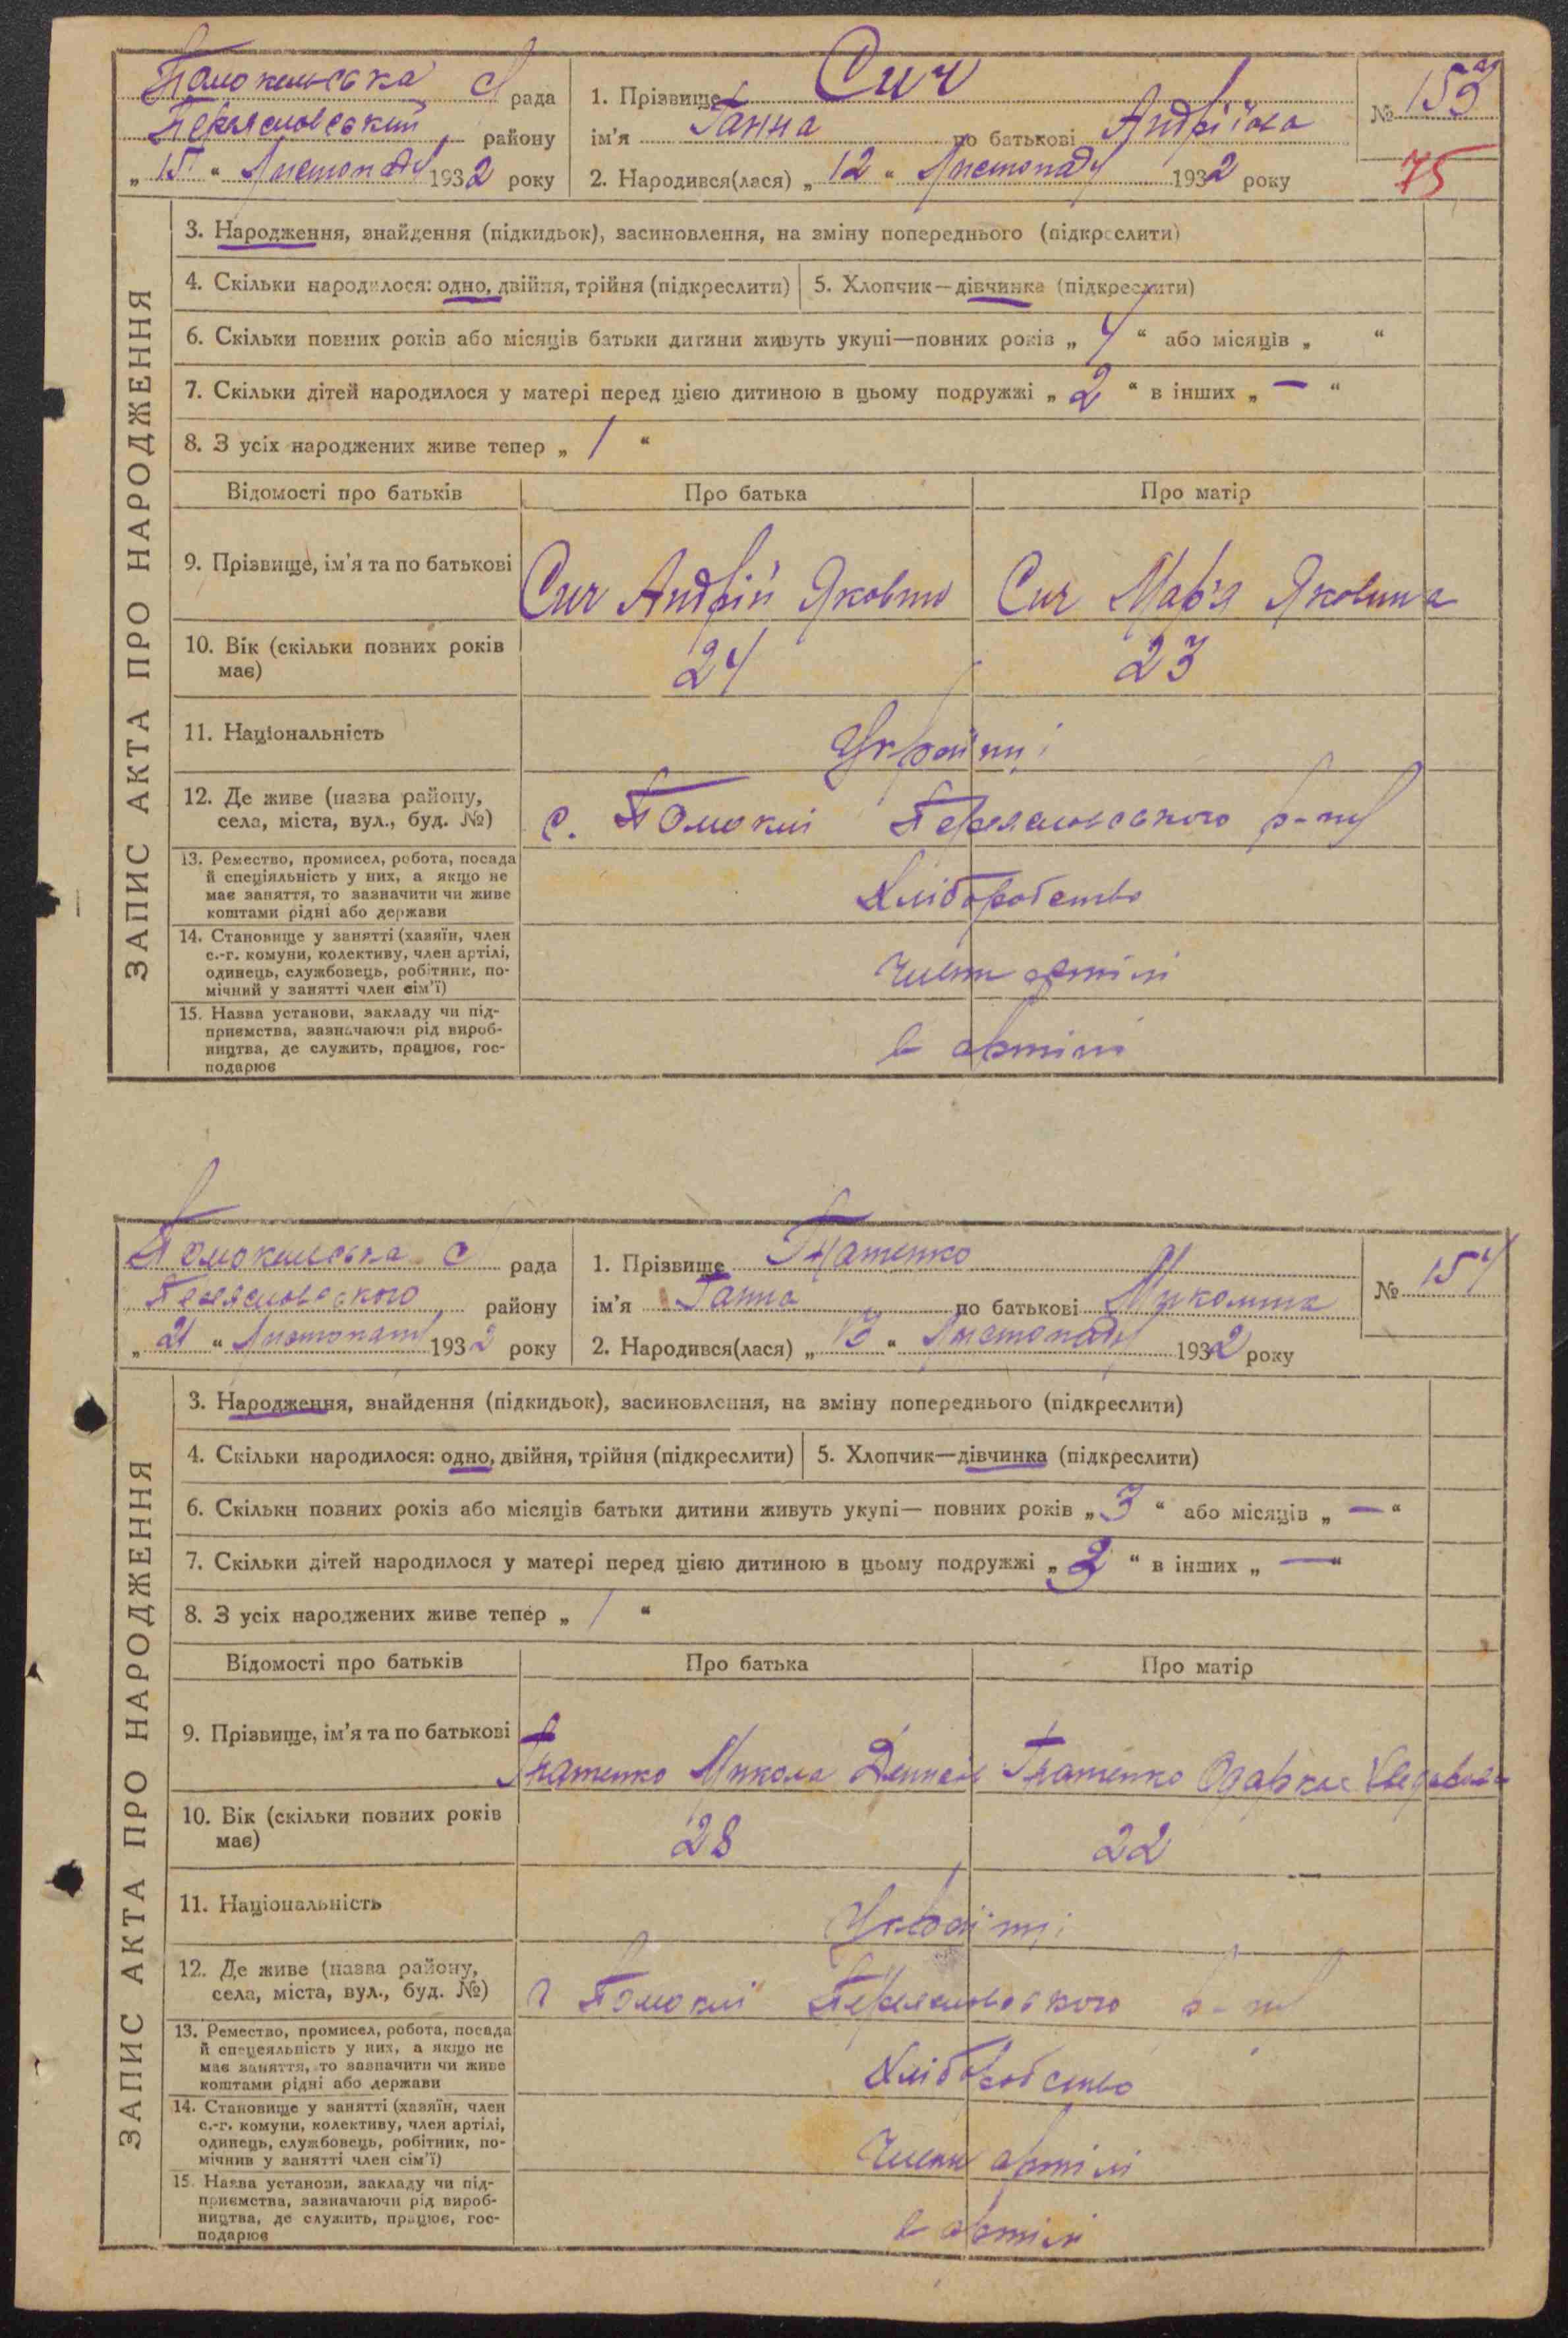 Помокельська С рада
Переяслювський району
„ 15 “ Листопаду 1932 року
1. Прізвище Сич
ім'я Ганна по батькові Андріївна
2. Народився(лася) „ 12 “ Листопаду 1932 року
№ 153
75
ЗАПИС АКТА ПРО НАРОДЖЕННЯ
3. Народження, знайдення (підкидьок), засиновлення, на зміну попереднього (підкреслити)
4. Скільки народилося: одно, двійня, трійня (підкреслити) 5. Хлопчик—дівчинка (підкреслити)
6. Скільки повних років або місяців батьки дитини живуть укупі—повних років „ 4 “ або місяців „ “
7. Скільки дітей народилося у матері перед цією дитиною в цьому подружжі „ 2 “ в інших „ — “
8. З усіх народжених живе тепер „ 1 “
Відомості про батьків Про батька Про матір
9. Прізвище, ім'я та по батькові Сич Андрій Якович Сич Мар'я Яковина
10. Вік (скільки повних років
має) 24 23
11. Національність Українці
12. Де живе (назва району,
села, міста, вул., буд. №) с. Помоклі Переяслювського р-ну
13. Ремество, промисел, робота, посада
й спеціяльність у них, а якщо не
має заняття, то зазначити чи живе
коштами рідні або держави
Хліборобство
14. Становище у занятті (хазяїн, член
с.-г. комуни, колективу, член артілі,
одинець, службовець, робітник, по-
мічний у занятті член сім'ї)
Члени артілі
15. Назва установи, закладу чи під-
приємства, зазначаючи рід вироб-
ництва, де служить, працює, гос-
подарює
в артілі
Помокельська С рада
Переяслювського району
„ 21 “ Листопаду 1932 року
1. Прізвище Гнатенко
ім'я Ганна по батькові Микол
2. Народився(лася) „ “ Листопаду 1932 року
№ 154
ЗАПИС АКТА ПРО НАРОДЖЕННЯ
3. Народження, знайдення (підкидьок), засиновлення, на зміну попереднього (підкреслити)
4. Скільки народилося: одно, двійня, трійня (підкреслити) 5. Хлопчик—дівчинка (підкреслити)
6. Скільки повних років або місяців батьки дитини живуть укупі— повних років „ 3 “ або місяців „ — “
7. Скільки дітей народилося у матері перед цією дитиною в цьому подружжі „ 2 “ в інших „ — “
8. З усіх народжених живе тепер „ 1 “
Відомості про батьків Про батька Про матір
9. Прізвище, ім'я та по батькові Гнатенко Микола Гнатенко Одарка
10. Вік (скільки повних років
має) 28 22
11. Національність Українці
12. Де живе (назва району,
села, міста, вул., буд. №) с Помоклі Переяслювського р-ну
13. Ремество, промисел, робота, посада
й спецеяльність у них, а якщо не
має заняття, то зазначити чи живе
коштами рідні або держави
Хліборобство
14. Становище у занятті (хазяїн, член
с.-г. комуни, колективу, член артілі,
одинець, службовець, робітник, по-
мічнив у занятті член сім'ї)
Члени артілі
15. Назва установи, закладу чи під-
приємства, зазначаючи рід вироб-
ництва, де служить, працює, гос-
подарює
в артілі